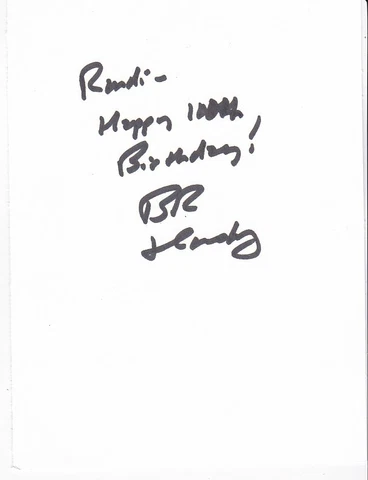 Randi-
Happy 100th
Birthday!
BR